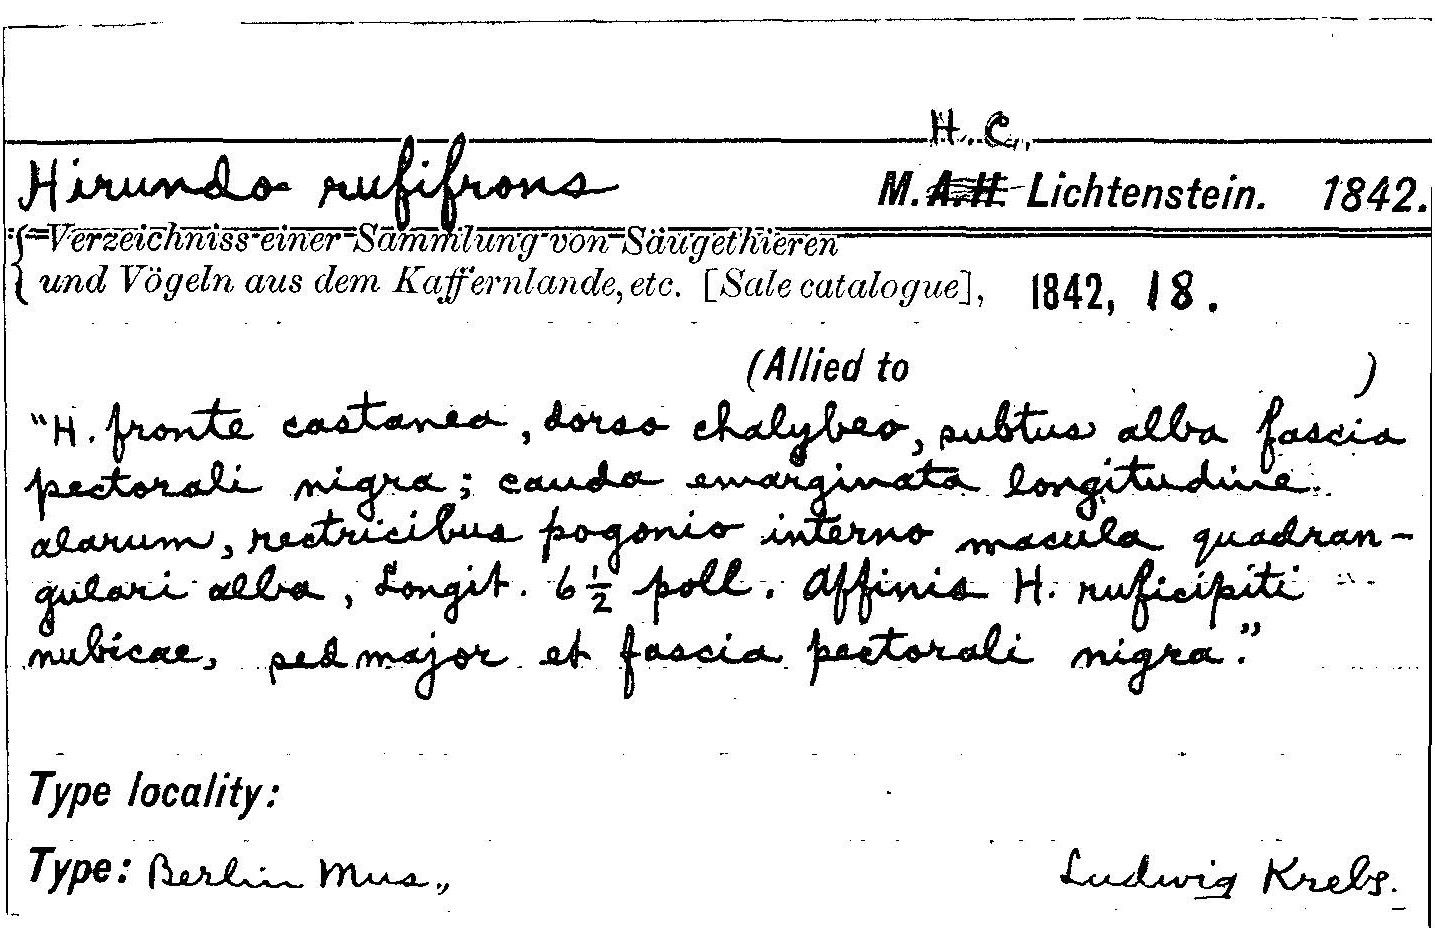 H. C.
Hirundo rufifrons M. A.H. Lichtenstein. 1842.
Verzeichniss einer Sammlung von Säugethieren
und Vögeln aus dem Kaffernlande, etc. [Sale catalogue], 1842, 18.
(Allied to )
"H. fronte castanea, dorso chalybeo, subtus alba fascia
pectorali nigra; cauda emarginata longitudine
alarum, rectricibus pogonio interno macula quadran-
gulari alba, Longit. 6 1/2 poll. Affinis H. ruficipiti
nubicae, sed major et fascia pectorali nigra."
Type locality:
Type: Berlin Mus., Ludwig Krebs.